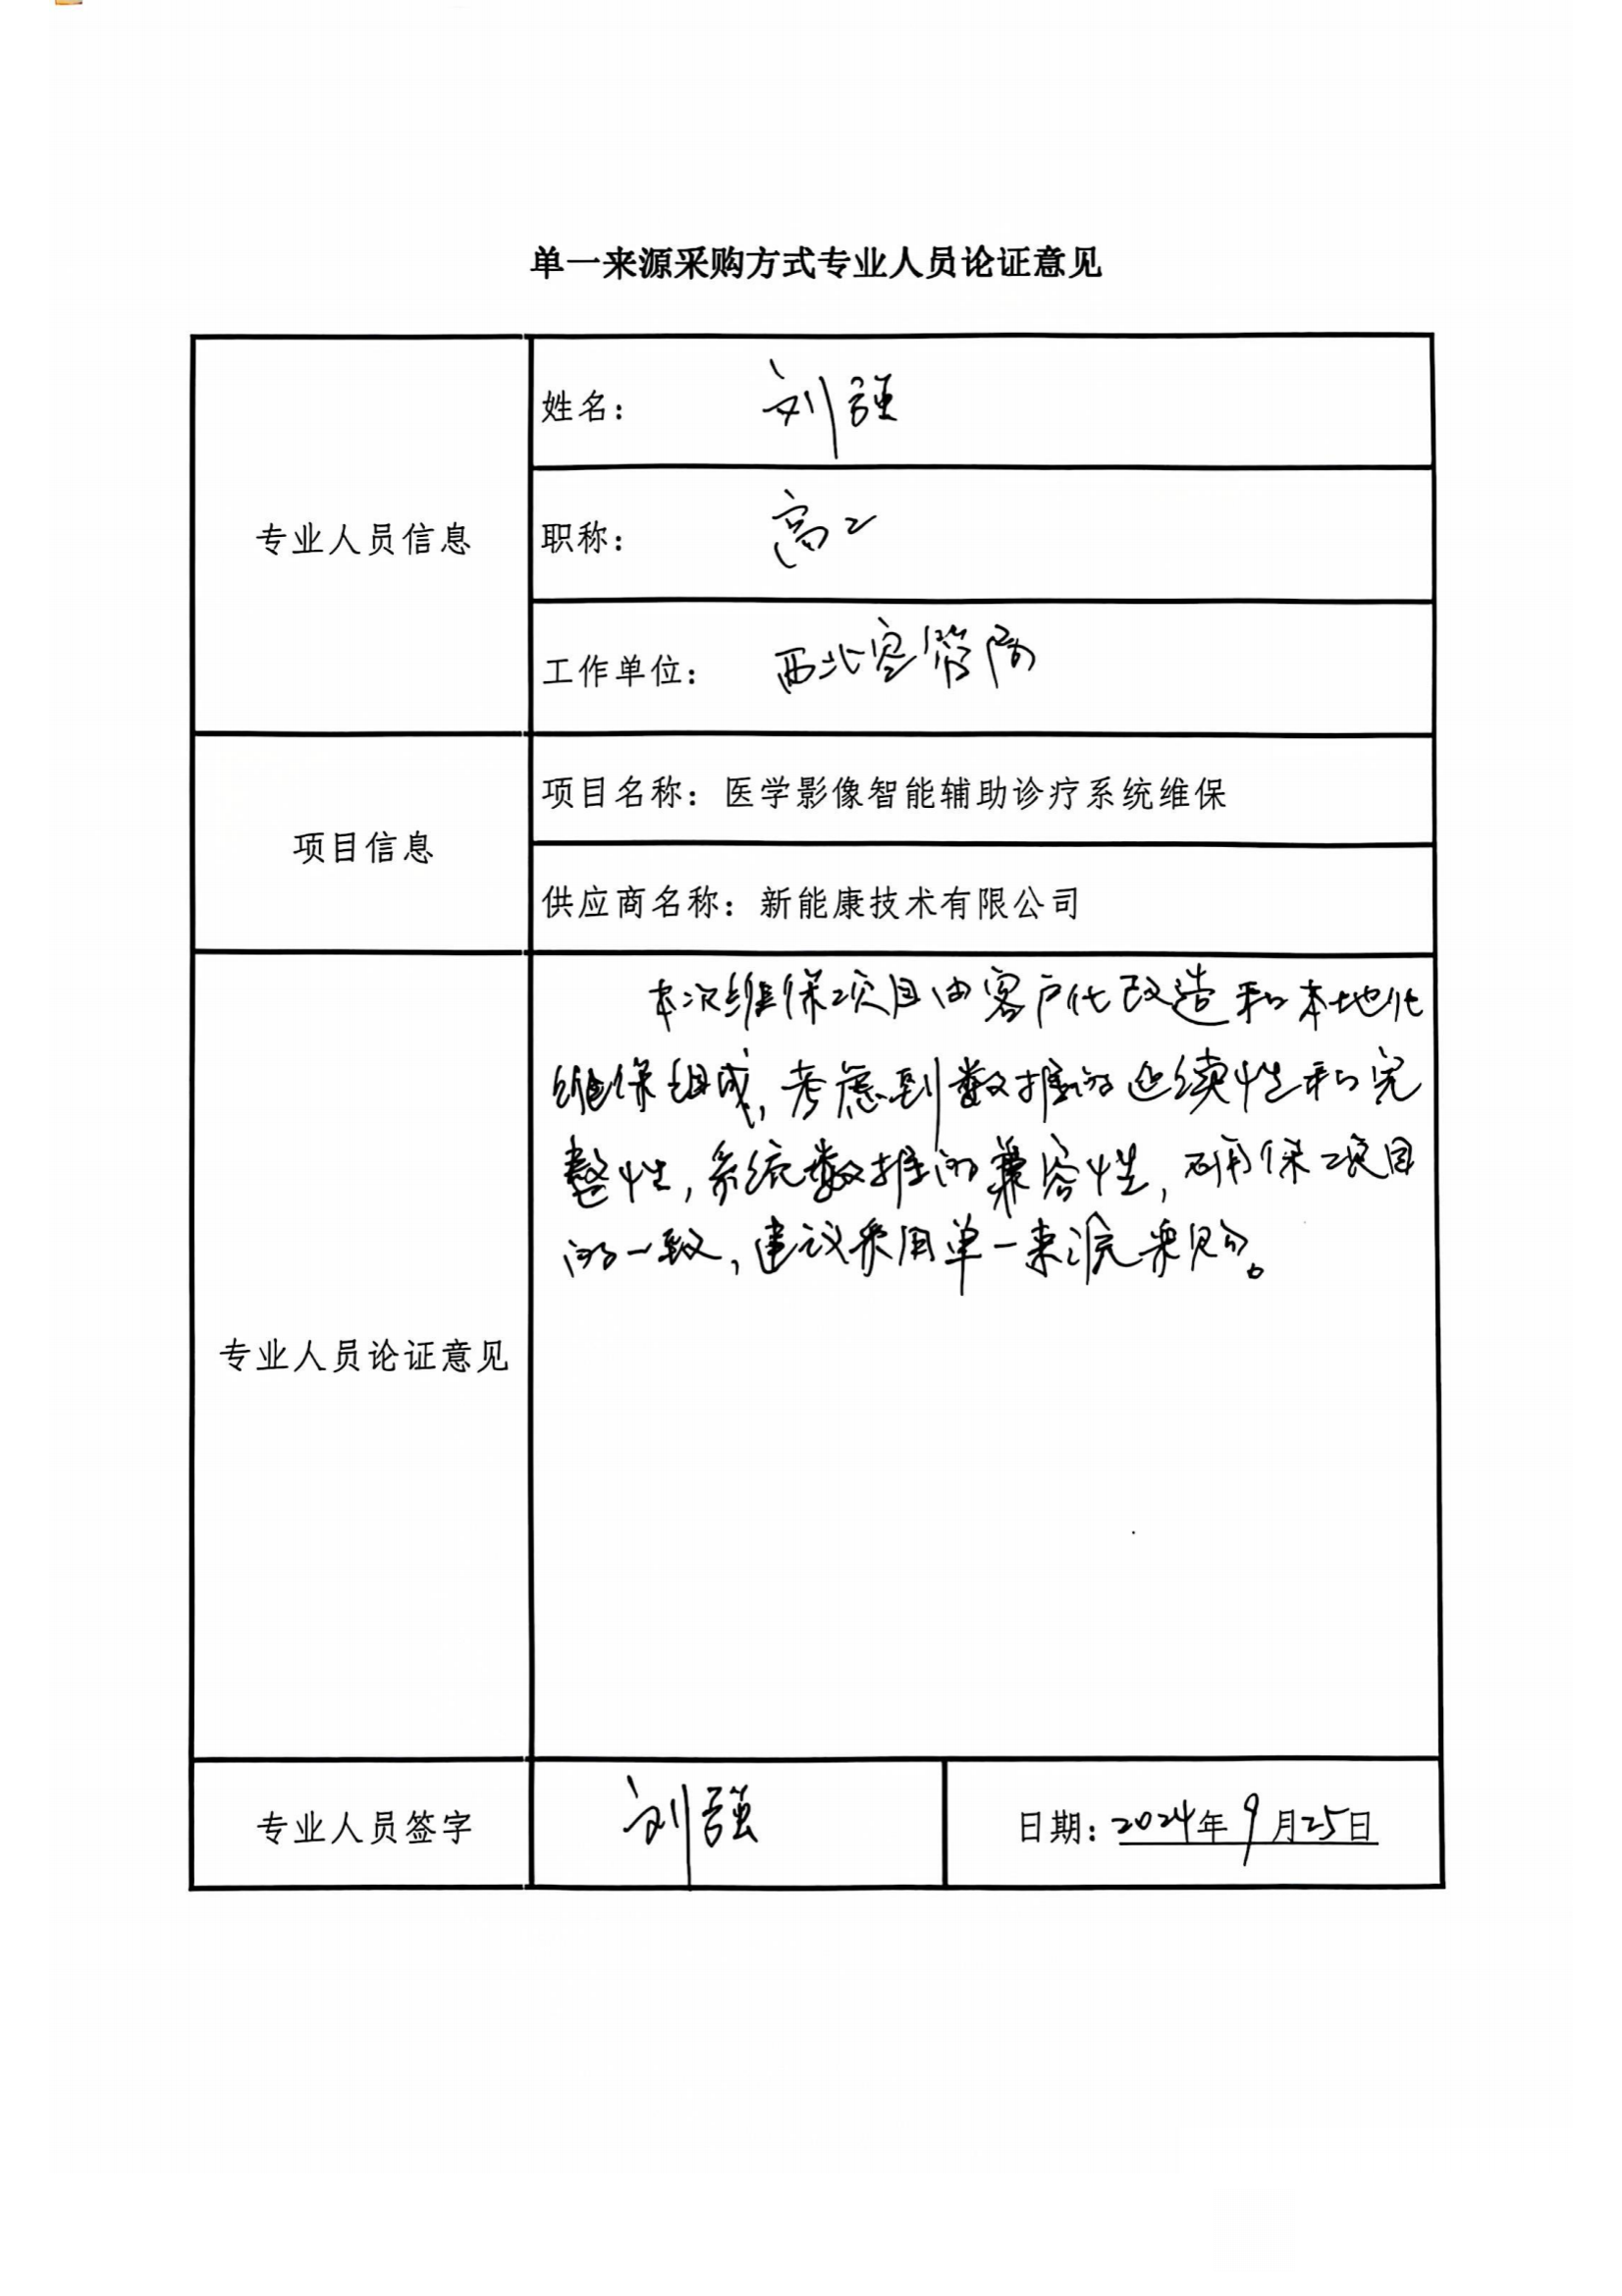 单一来源采购方式专业人员论证意见
专业人员信息
姓名： 刘强
职称： 高工
工作单位： 西北空管局
项目信息
项目名称：医学影像智能辅助诊疗系统维保
供应商名称：新能康技术有限公司
专业人员论证意见
本次维保项目由客户化改造和本地化
维保组成，考虑到数据的延续性和完
整性，系统数据的兼容性，确保项目
的一致，建议采用单一来源采购。
专业人员签字
刘强
日期：2024年9月25日